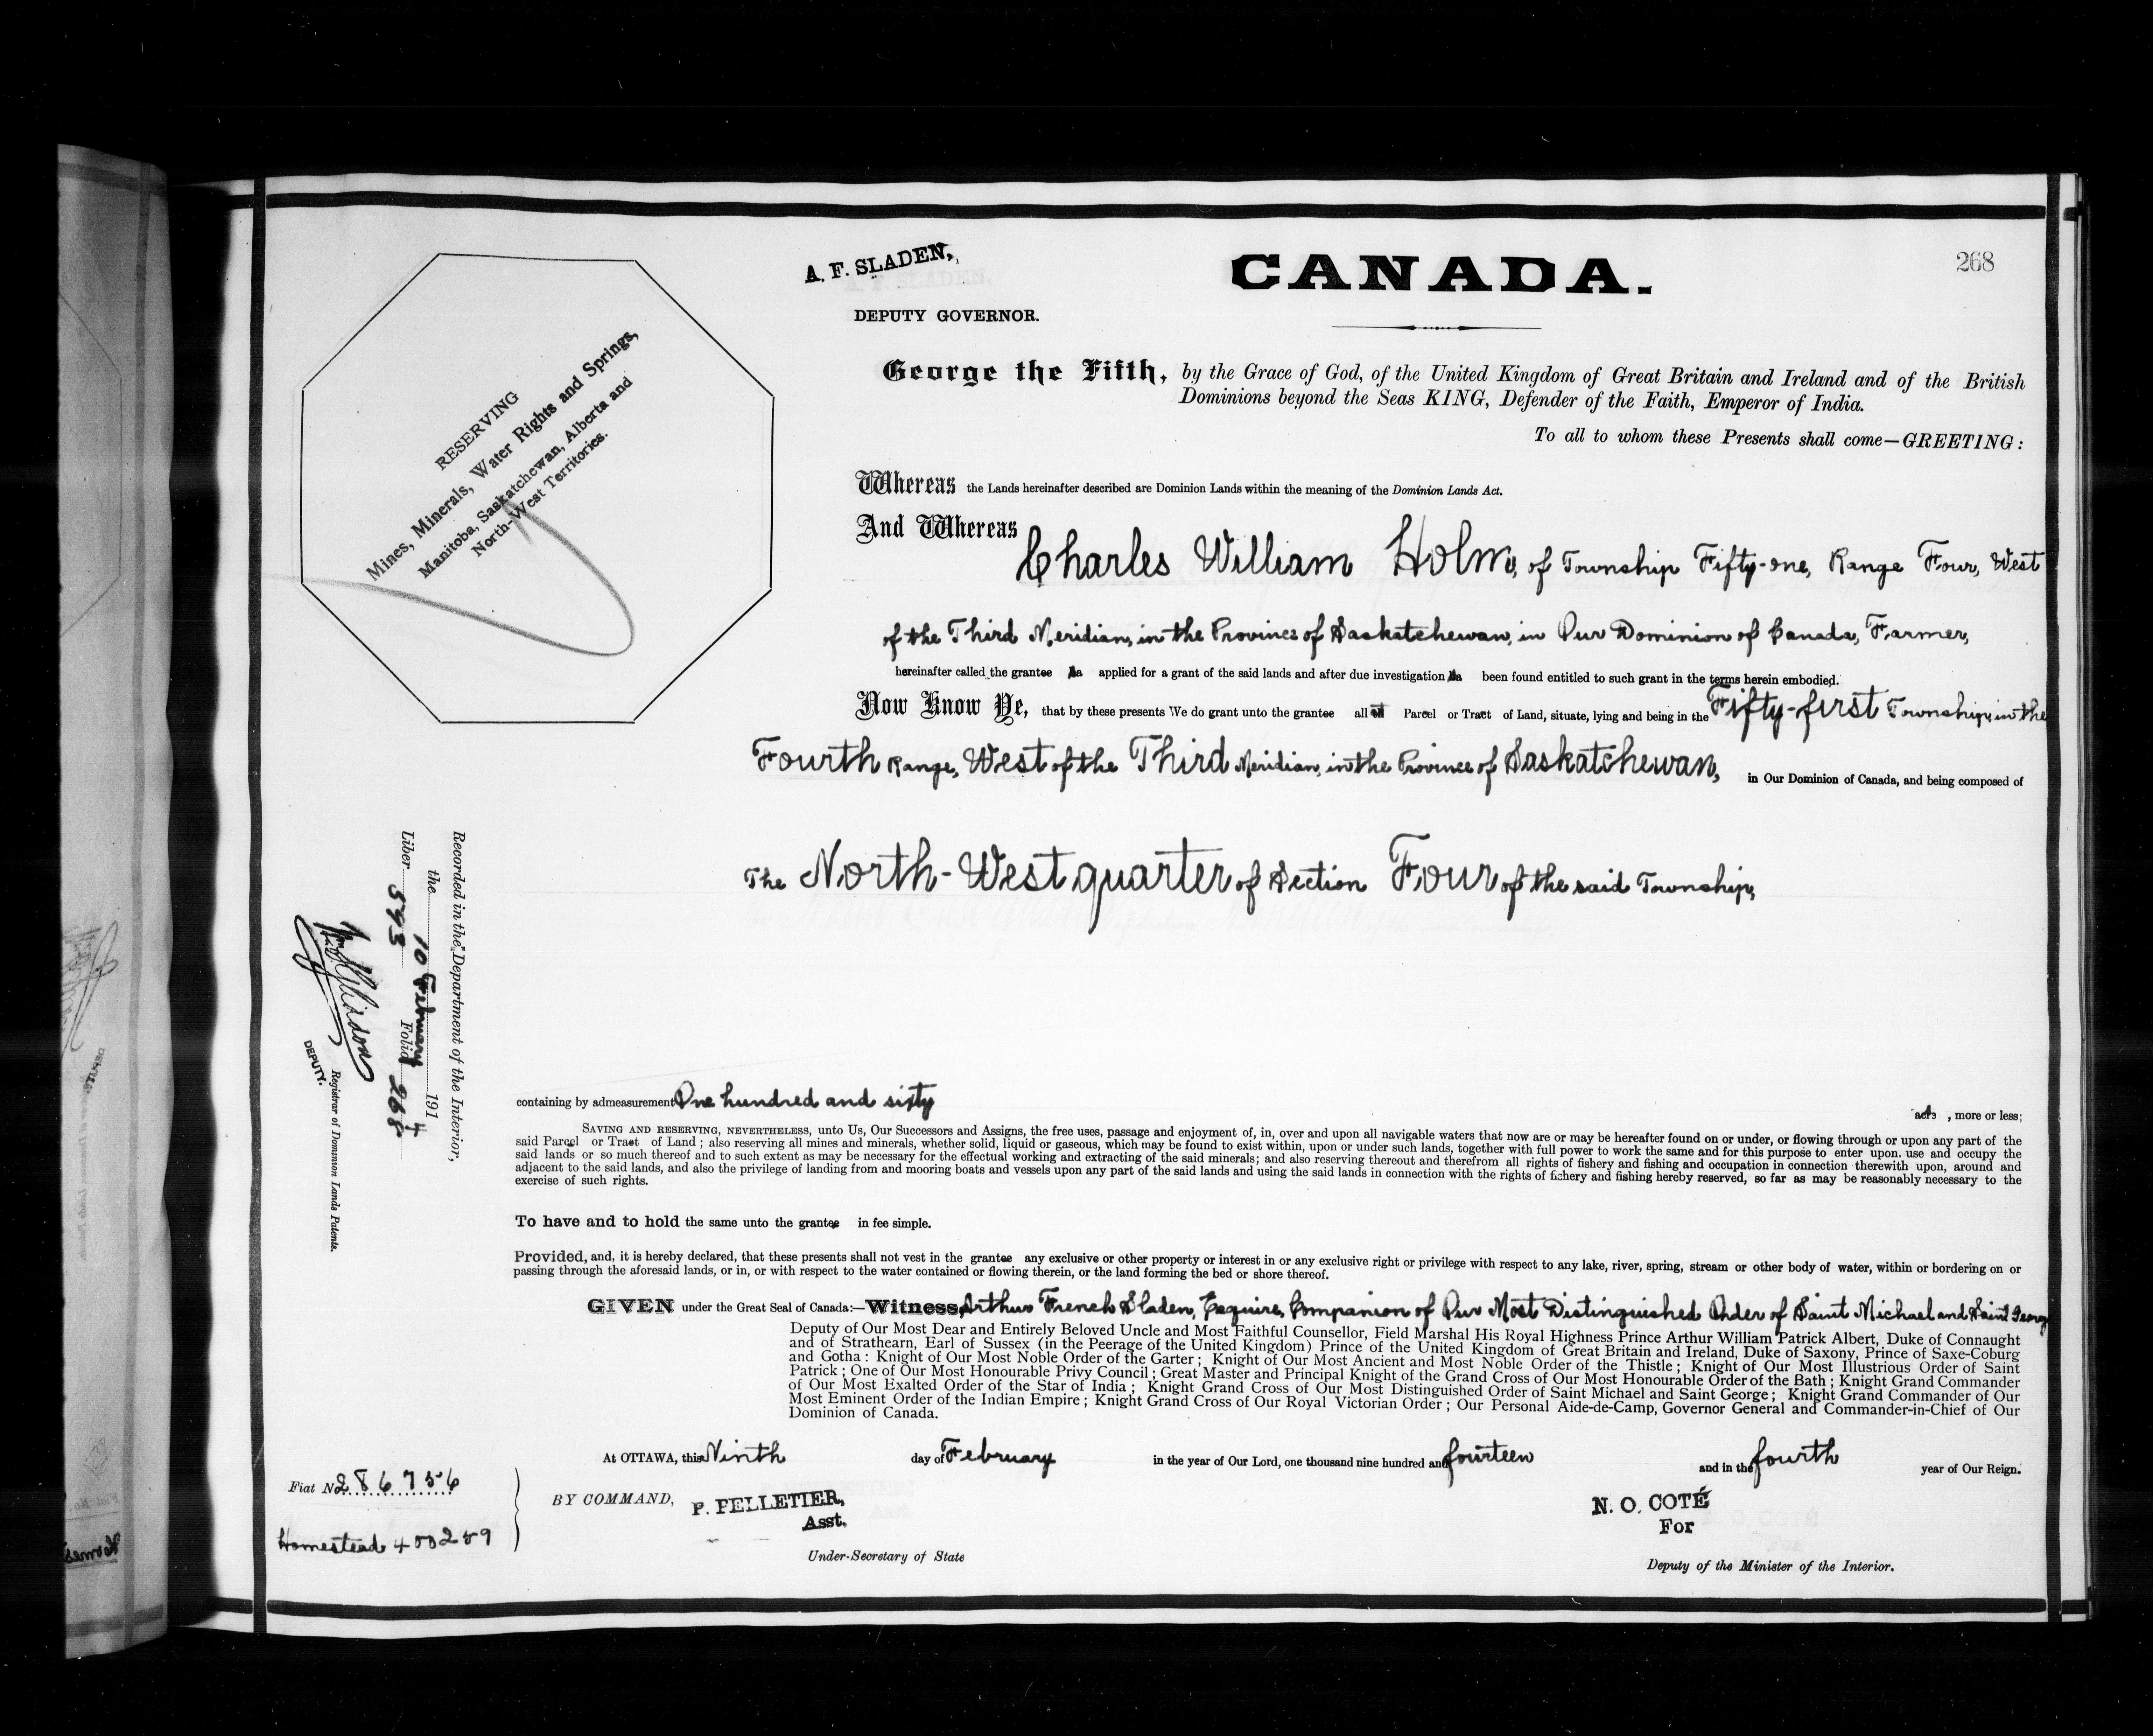 268
A. F. SLADEN,
CANADA.
DEPUTY GOVERNOR.
George the Fifth, by the Grace of God, of the United Kingdom of Great Britain and Ireland and of the British
Dominions beyond the Seas KING, Defender of the Faith, Emperor of India.
To all to whom these Presents shall come—GREETING:
RESERVING
Mines, Minerals, Water Rights and Springs,
Manitoba, Saskatchewan, Alberta and
North-West Territories.
Whereas the Lands hereinafter described are Dominion Lands within the meaning of the Dominion Lands Act.
And Whereas Charles William Holm, of Township Fifty-one, Range Four, West
of the Third Meridian, in the Province of Saskatchewan, in Our Dominion of Canada, Farmer,
hereinafter called the grantee ha applied for a grant of the said lands and after due investigation ha been found entitled to such grant in the terms herein embodied.
Now Know Ye, that by these presents We do grant unto the grantee all Parcel or Tract of Land, situate, lying and being in the Fifty-first Township, in the
Fourth Range, West of the Third Meridian, in the Province of Saskatchewan, in Our Dominion of Canada, and being composed of
The North-West quarter of Section Four of the said Township,
Recorded in the Department of the Interior,
the 10 February 1914
Liber 593 Folio 268
DEPUTY. Registrar of Dominion Lands Patents.
containing by admeasurement One hundred and sixty
acres, more or less;
SAVING AND RESERVING, NEVERTHELESS, unto Us, Our Successors and Assigns, the free uses, passage and enjoyment of, in, over and upon all navigable waters that now are or may be hereafter found on or under, or flowing through or upon any part of the
said Parcel or Tract of Land; also reserving all mines and minerals, whether solid, liquid or gaseous, which may be found to exist within, upon or under such lands, together with full power to work the same and for this purpose to enter upon, use and occupy the
said lands or so much thereof and to such extent as may be necessary for the effectual working and extracting of the said minerals; and also reserving thereout and therefrom all rights of fishery and fishing and occupation in connection therewith upon, around and
adjacent to the said lands, and also the privilege of landing from and mooring boats and vessels upon any part of the said lands and using the said lands in connection with the rights of fishery and fishing hereby reserved, so far as may be reasonably necessary to the
exercise of such rights.
To have and to hold the same unto the grantee in fee simple.
Provided, and, it is hereby declared, that these presents shall not vest in the grantee any exclusive or other property or interest in or any exclusive right or privilege with respect to any lake, river, spring, stream or other body of water, within or bordering on or
passing through the aforesaid lands, or in, or with respect to the water contained or flowing therein, or the land forming the bed or shore thereof.
GIVEN under the Great Seal of Canada:—Witness, Arthur French Sladen, Esquire, Companion of Our Most Distinguished Order of Saint Michael and Saint George
Deputy of Our Most Dear and Entirely Beloved Uncle and Most Faithful Counsellor, Field Marshal His Royal Highness Prince Arthur William Patrick Albert, Duke of Connaught
and of Strathearn, Earl of Sussex (in the Peerage of the United Kingdom) Prince of the United Kingdom of Great Britain and Ireland, Duke of Saxony, Prince of Saxe-Coburg
and Gotha: Knight of Our Most Noble Order of the Garter; Knight of Our Most Ancient and Most Noble Order of the Thistle; Knight of Our Most Illustrious Order of Saint
Patrick; One of Our Most Honourable Privy Council; Great Master and Principal Knight of the Grand Cross of Our Most Honourable Order of the Bath; Knight Grand Commander
of Our Most Exalted Order of the Star of India; Knight Grand Cross of Our Most Distinguished Order of Saint Michael and Saint George; Knight Grand Commander of Our
Most Eminent Order of the Indian Empire; Knight Grand Cross of Our Royal Victorian Order; Our Personal Aide-de-Camp, Governor General and Commander-in-Chief of Our
Dominion of Canada.
At OTTAWA, this Ninth day of February in the year of Our Lord, one thousand nine hundred and fourteen and in the fourth year of Our Reign.
Fiat No 286756
Homestead 400259
BY COMMAND, P. PELLETIER,
Asst.
Under-Secretary of State
N. O. COTÉ
For
Deputy of the Minister of the Interior.